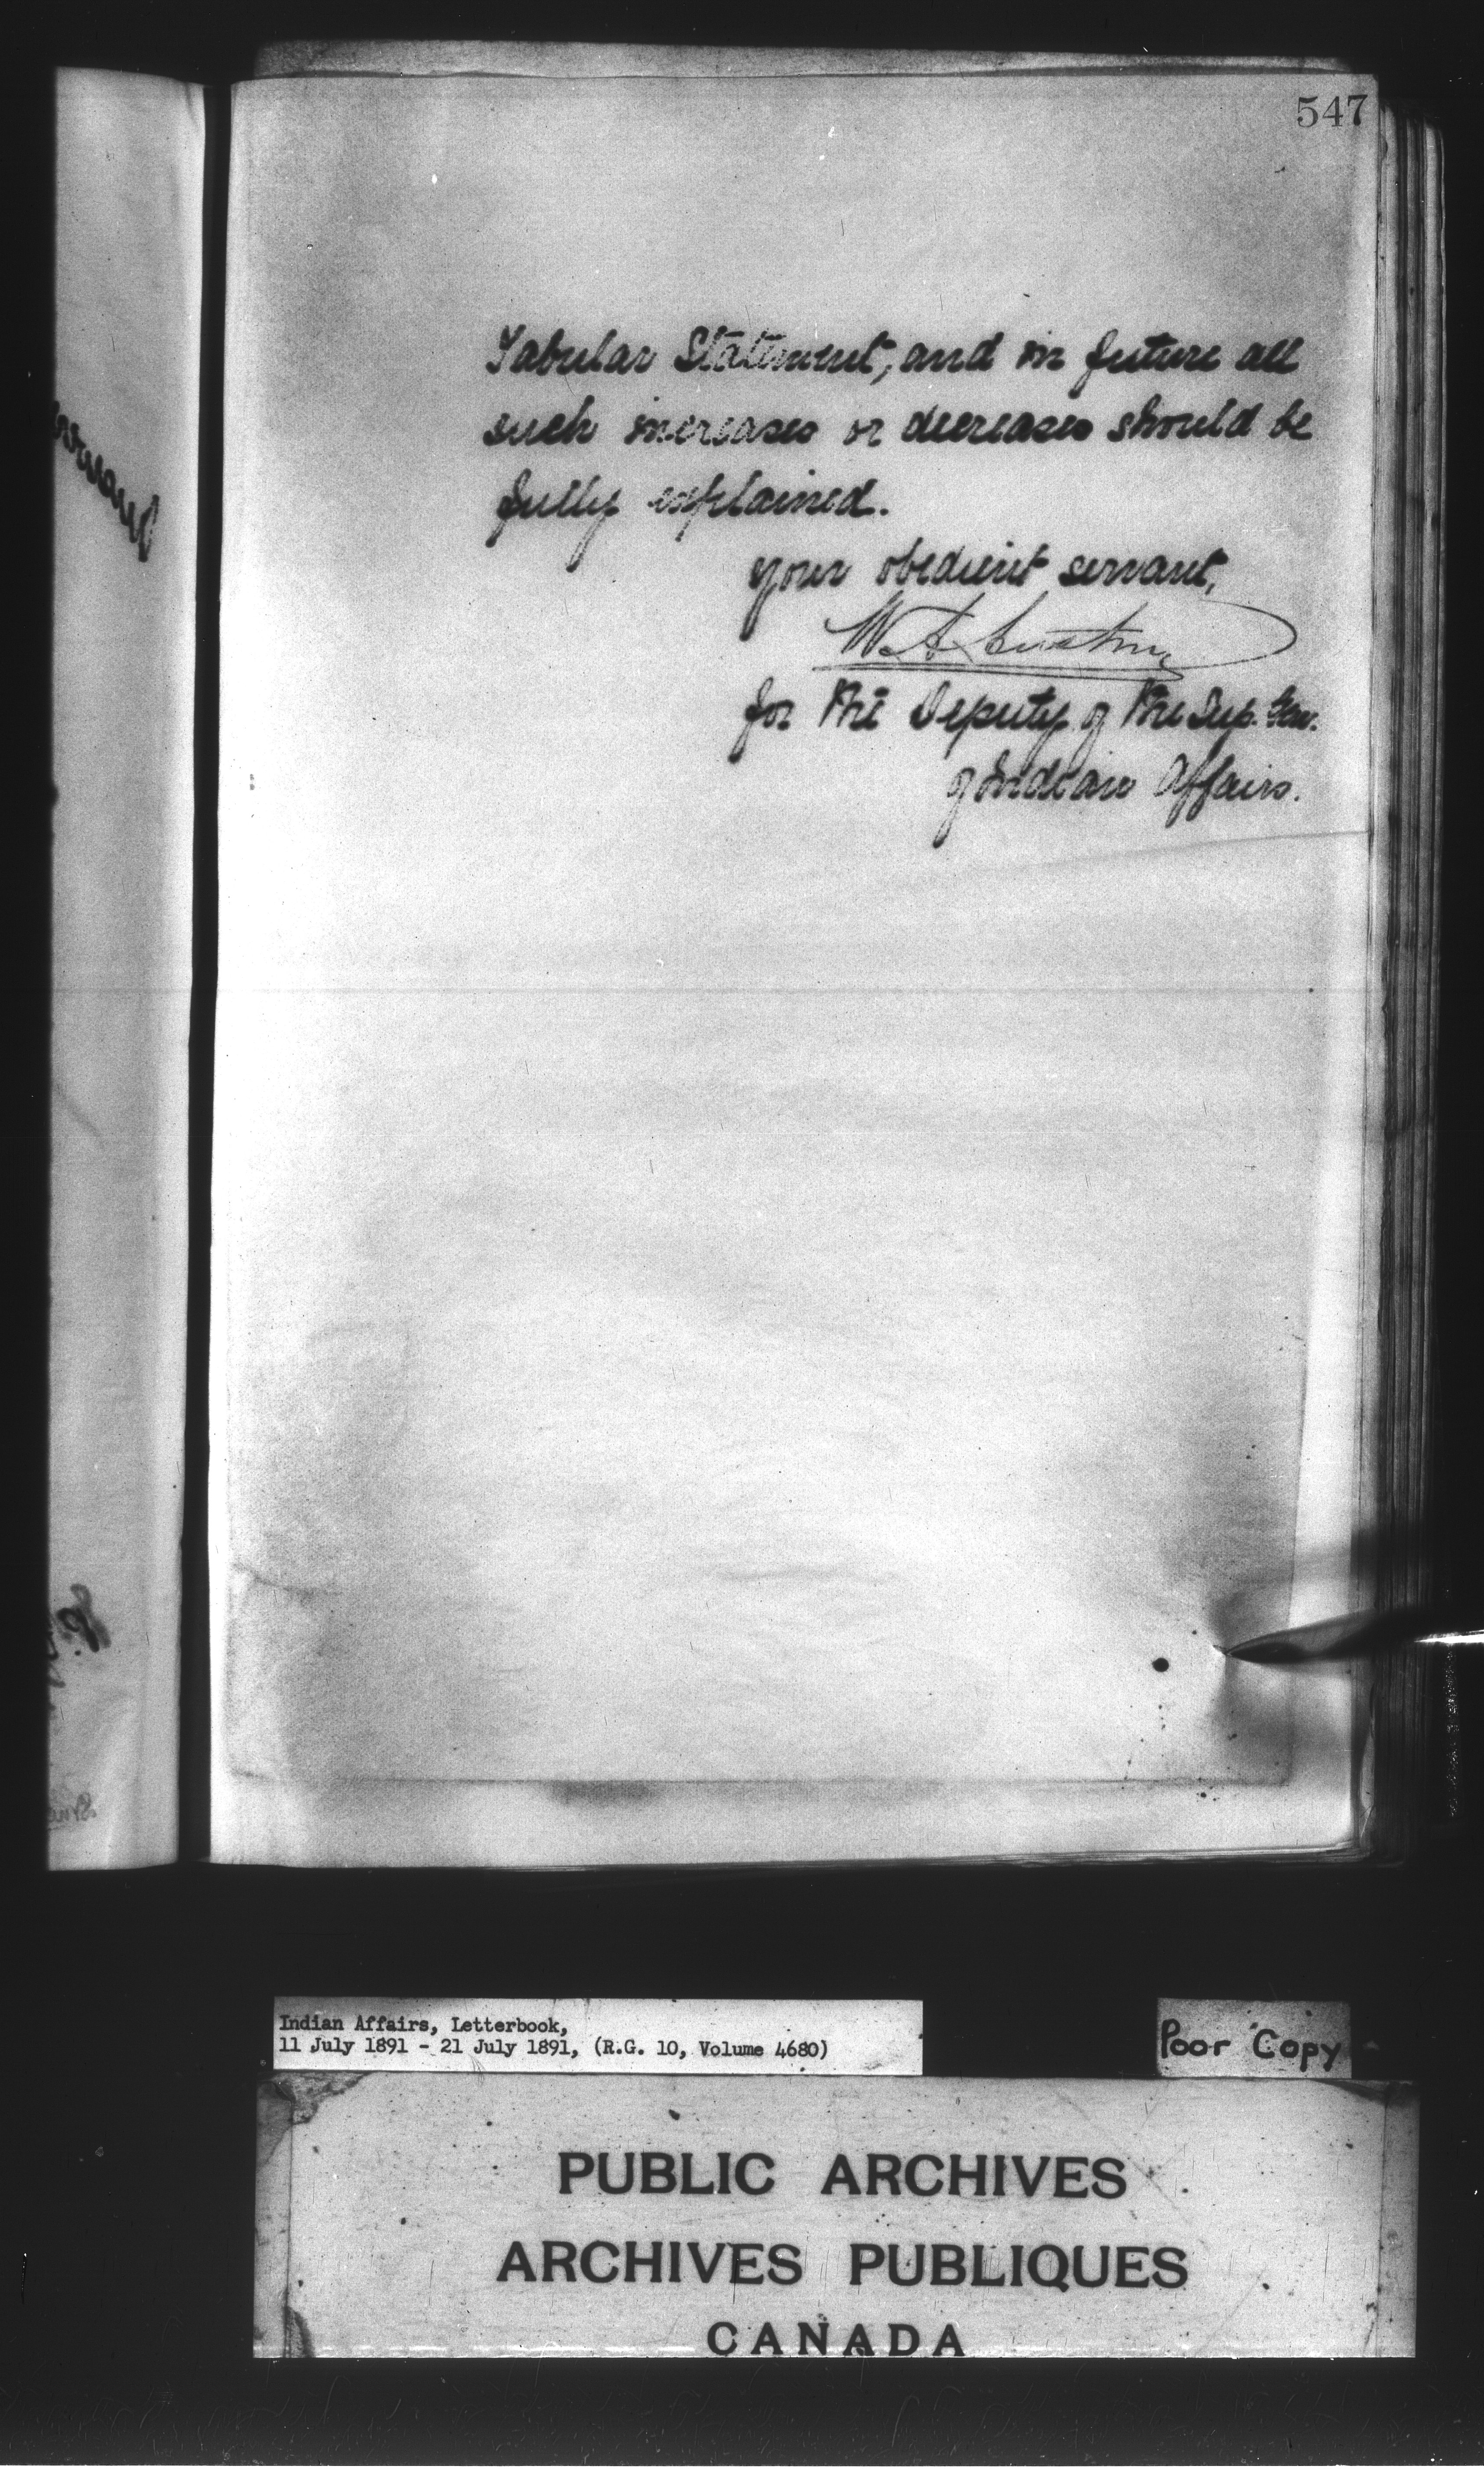 547
Tabular Statement, and in future all
such increases or decreases should be
fully explained.
your obedient servant,
W. A. Austin
for the Deputy of the Sup. Gen.
of Indian Affairs.
Indian Affairs, Letterbook,
11 July 1891 - 21 July 1891, (R.G. 10, Volume 4680)
Poor Copy
PUBLIC ARCHIVES
ARCHIVES PUBLIQUES
CANADA